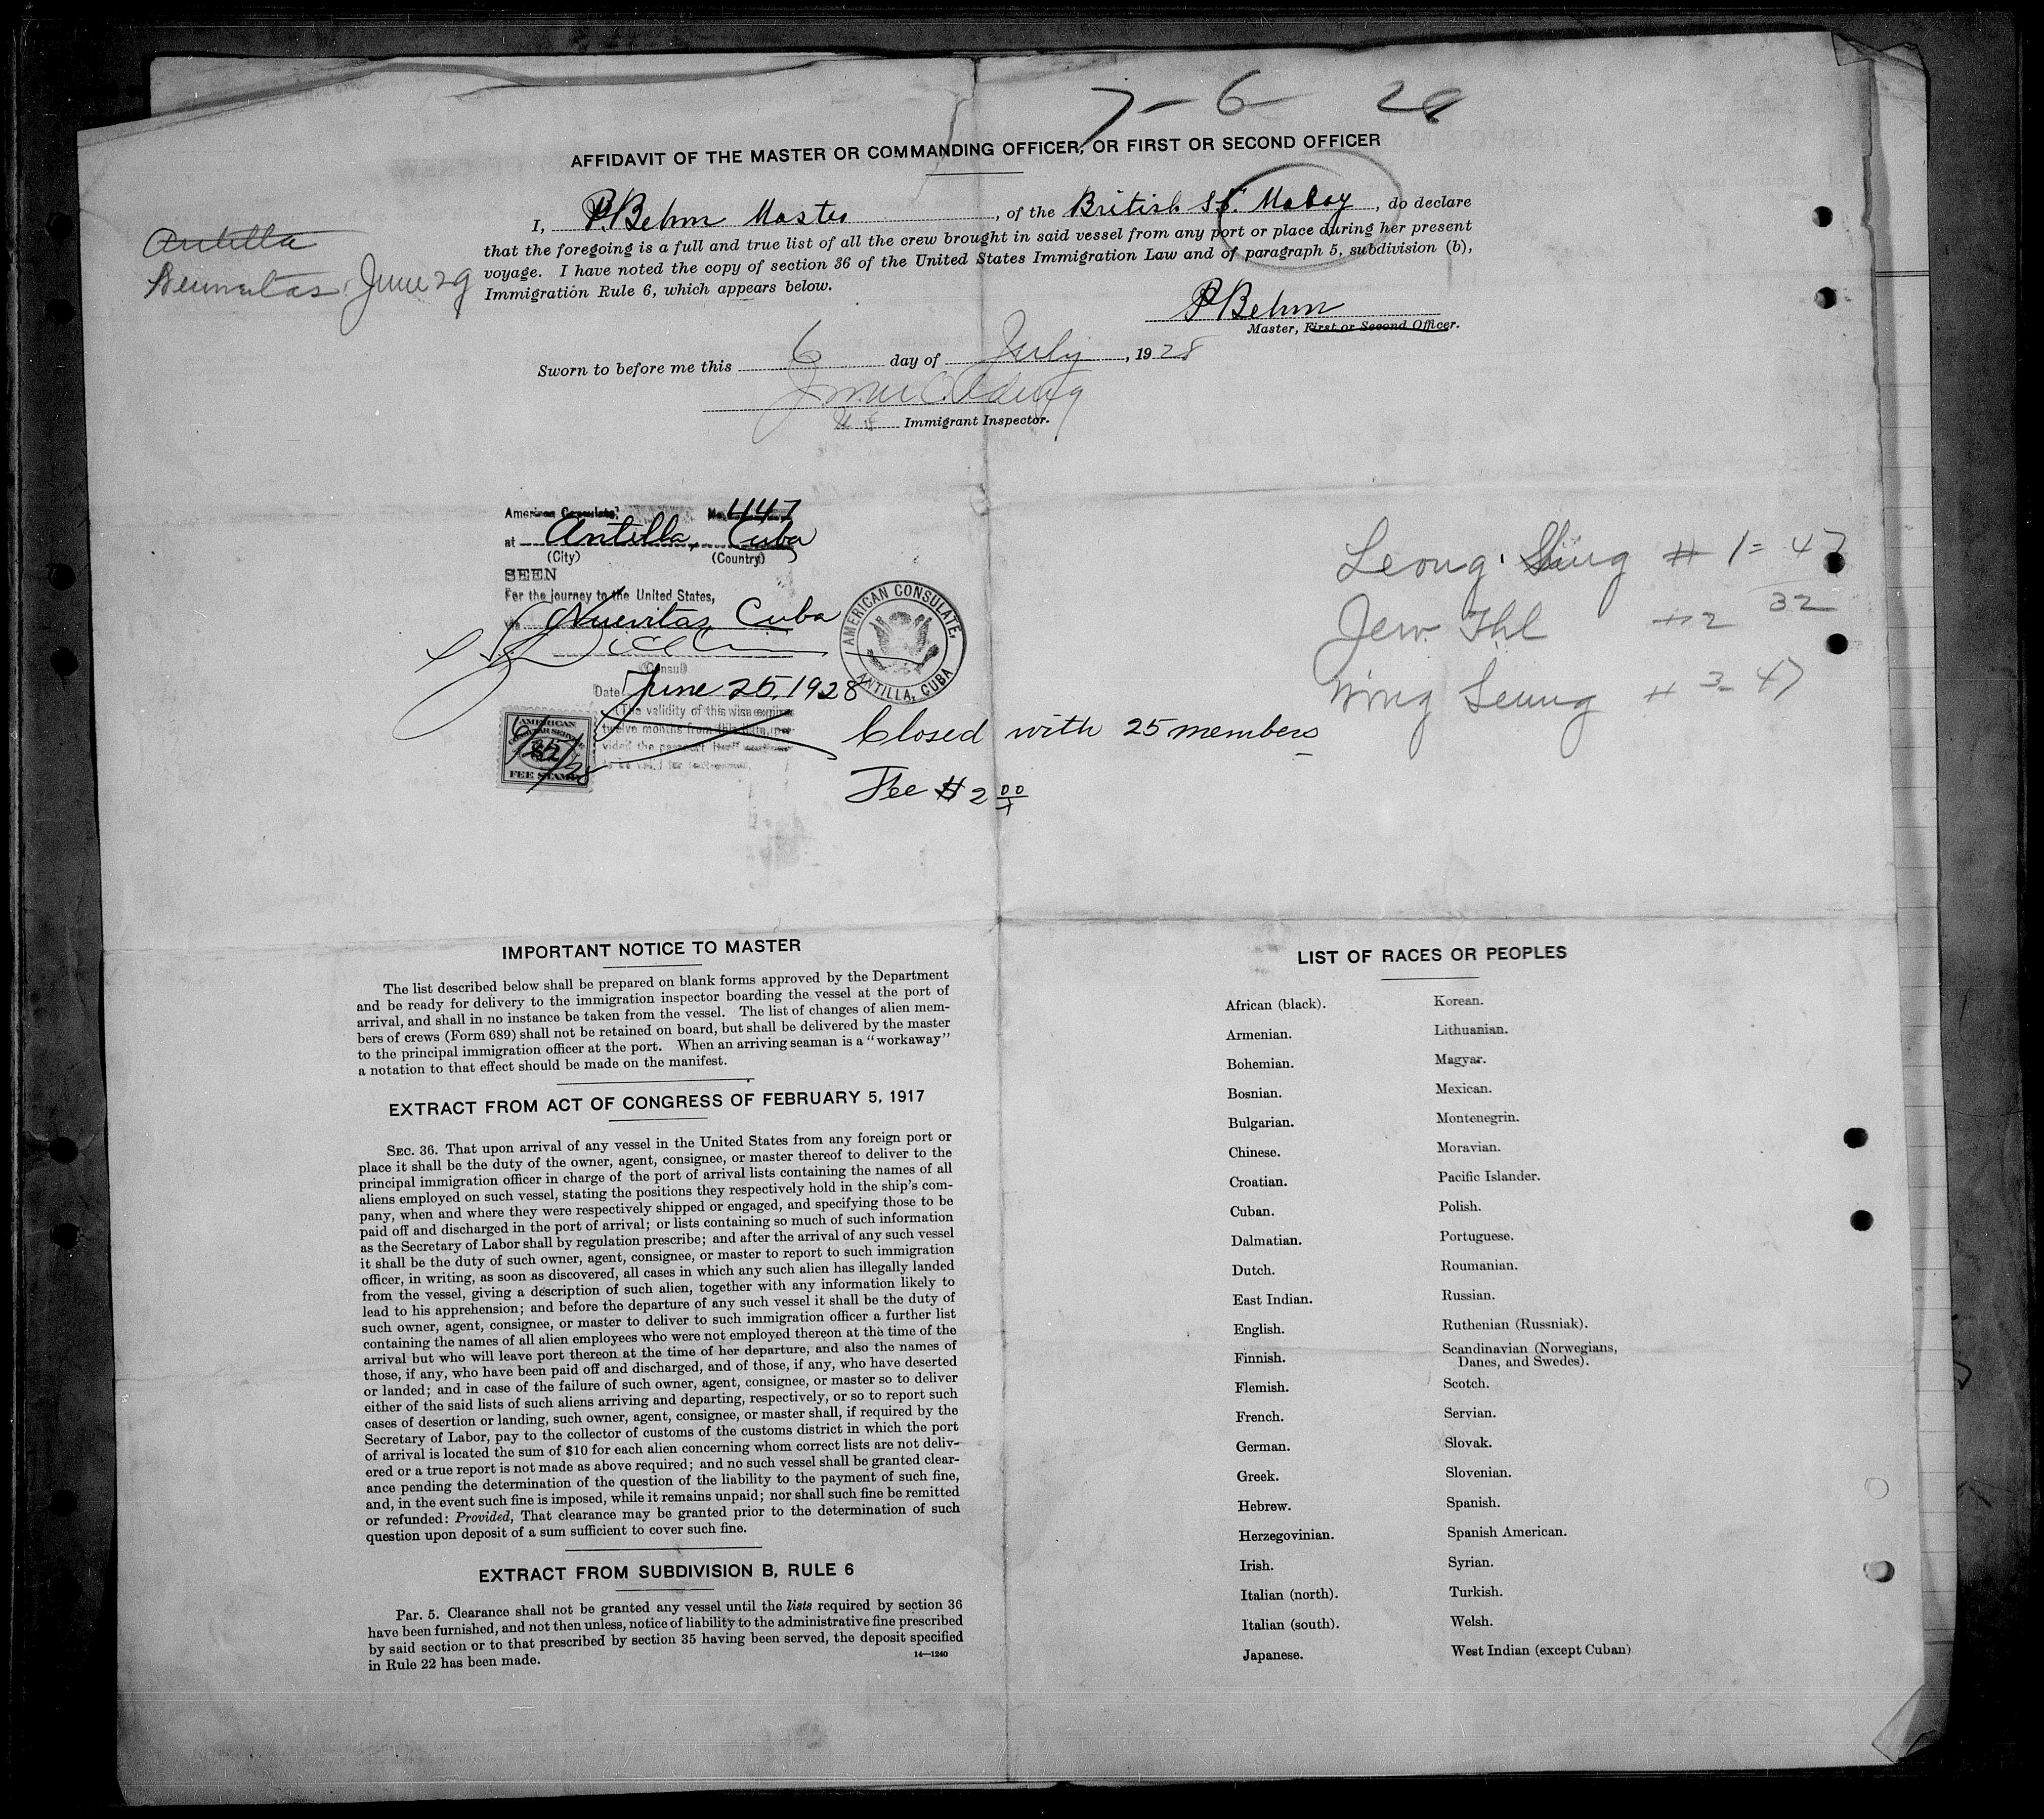 7-6
AFFIDAVIT OF THE MASTER OR COMMANDING OFFICER, OR FIRST OR SECOND OFFICER
I, P. Behm Master, of the British SS. Mabay, do declare
that the foregoing is a full and true list of all the crew brought in said vessel from any port or place during her present
voyage. I have noted the copy of section 36 of the United States Immigration Law and of paragraph 5, subdivision (b),
Immigration Rule 6, which appears below.
Antilla
June 29
P Behm
Master, First or Second Officer.
Sworn to before me this 6 day of July, 1928
Immigrant Inspector.
American Consulate No. 447
at Antilla, Cuba
(City) (Country)
SEEN
For the journey to the United States,
via Nuevitas, Cuba
Consul
Date June 25, 1928
(The validity of this visa expires
twelve months from this date, pro-
vided the passport itself continues
AMERICAN CONSULATE,
ANTILLA, CUBA
AMERICAN
CONSULAR SERVICE
$2
6/25/28
FEE STAMP
Closed with 25 members
Fee $2 00
Leong Sing # 1 = 47
Jew Thl #2 32
Wing Leung # 3- 47
IMPORTANT NOTICE TO MASTER
The list described below shall be prepared on blank forms approved by the Department
and be ready for delivery to the immigration inspector boarding the vessel at the port of
arrival, and shall in no instance be taken from the vessel. The list of changes of alien mem-
bers of crews (Form 689) shall not be retained on board, but shall be delivered by the master
to the principal immigration officer at the port. When an arriving seaman is a "workaway"
a notation to that effect should be made on the manifest.
EXTRACT FROM ACT OF CONGRESS OF FEBRUARY 5, 1917
SEC. 36. That upon arrival of any vessel in the United States from any foreign port or
place it shall be the duty of the owner, agent, consignee, or master thereof to deliver to the
principal immigration officer in charge of the port of arrival lists containing the names of all
aliens employed on such vessel, stating the positions they respectively hold in the ship's com-
pany, when and where they were respectively shipped or engaged, and specifying those to be
paid off and discharged in the port of arrival; or lists containing so much of such information
as the Secretary of Labor shall by regulation prescribe; and after the arrival of any such vessel
it shall be the duty of such owner, agent, consignee, or master to report to such immigration
officer, in writing, as soon as discovered, all cases in which any such alien has illegally landed
from the vessel, giving a description of such alien, together with any information likely to
lead to his apprehension; and before the departure of any such vessel it shall be the duty of
such owner, agent, consignee, or master to deliver to such immigration officer a further list
containing the names of all alien employees who were not employed thereon at the time of the
arrival but who will leave port thereon at the time of her departure, and also the names of
those, if any, who have been paid off and discharged, and of those, if any, who have deserted
or landed; and in case of the failure of such owner, agent, consignee, or master so to deliver
either of the said lists of such aliens arriving and departing, respectively, or so to report such
cases of desertion or landing, such owner, agent, consignee, or master shall, if required by the
Secretary of Labor, pay to the collector of customs of the customs district in which the port
of arrival is located the sum of $10 for each alien concerning whom correct lists are not deliv-
ered or a true report is not made as above required; and no such vessel shall be granted clear-
ance pending the determination of the question of the liability to the payment of such fine,
and, in the event such fine is imposed, while it remains unpaid; nor shall such fine be remitted
or refunded: Provided, That clearance may be granted prior to the determination of such
question upon deposit of a sum sufficient to cover such fine.
EXTRACT FROM SUBDIVISION B, RULE 6
Par. 5. Clearance shall not be granted any vessel until the lists required by section 36
have been furnished, and not then unless, notice of liability to the administrative fine prescribed
by said section or to that prescribed by section 35 having been served, the deposit specified
in Rule 22 has been made.
14—1240
LIST OF RACES OR PEOPLES
African (black).
Armenian.
Bohemian.
Bosnian.
Bulgarian.
Chinese.
Croatian.
Cuban.
Dalmatian.
Dutch.
East Indian.
English.
Finnish.
Flemish.
French.
German.
Greek.
Hebrew.
Herzegovinian.
Irish.
Italian (north).
Italian (south).
Japanese.
Korean.
Lithuanian.
Magyar.
Mexican.
Montenegrin.
Moravian.
Pacific Islander.
Polish.
Portuguese.
Roumanian.
Russian.
Ruthenian (Russniak).
Scandinavian (Norwegians,
Danes, and Swedes).
Scotch.
Servian.
Slovak.
Slovenian.
Spanish.
Spanish American.
Syrian.
Turkish.
Welsh.
West Indian (except Cuban)